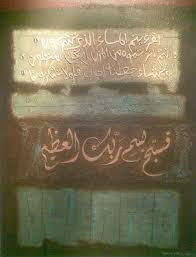 أفرءيتم الماء الذي تشربون
ءأنتم أنزلتموه من المزن أم نحن المنزلون
لو نشاء جعلناه أجاجا فلولا تشكرون
فسبح بسم ربك العظيم